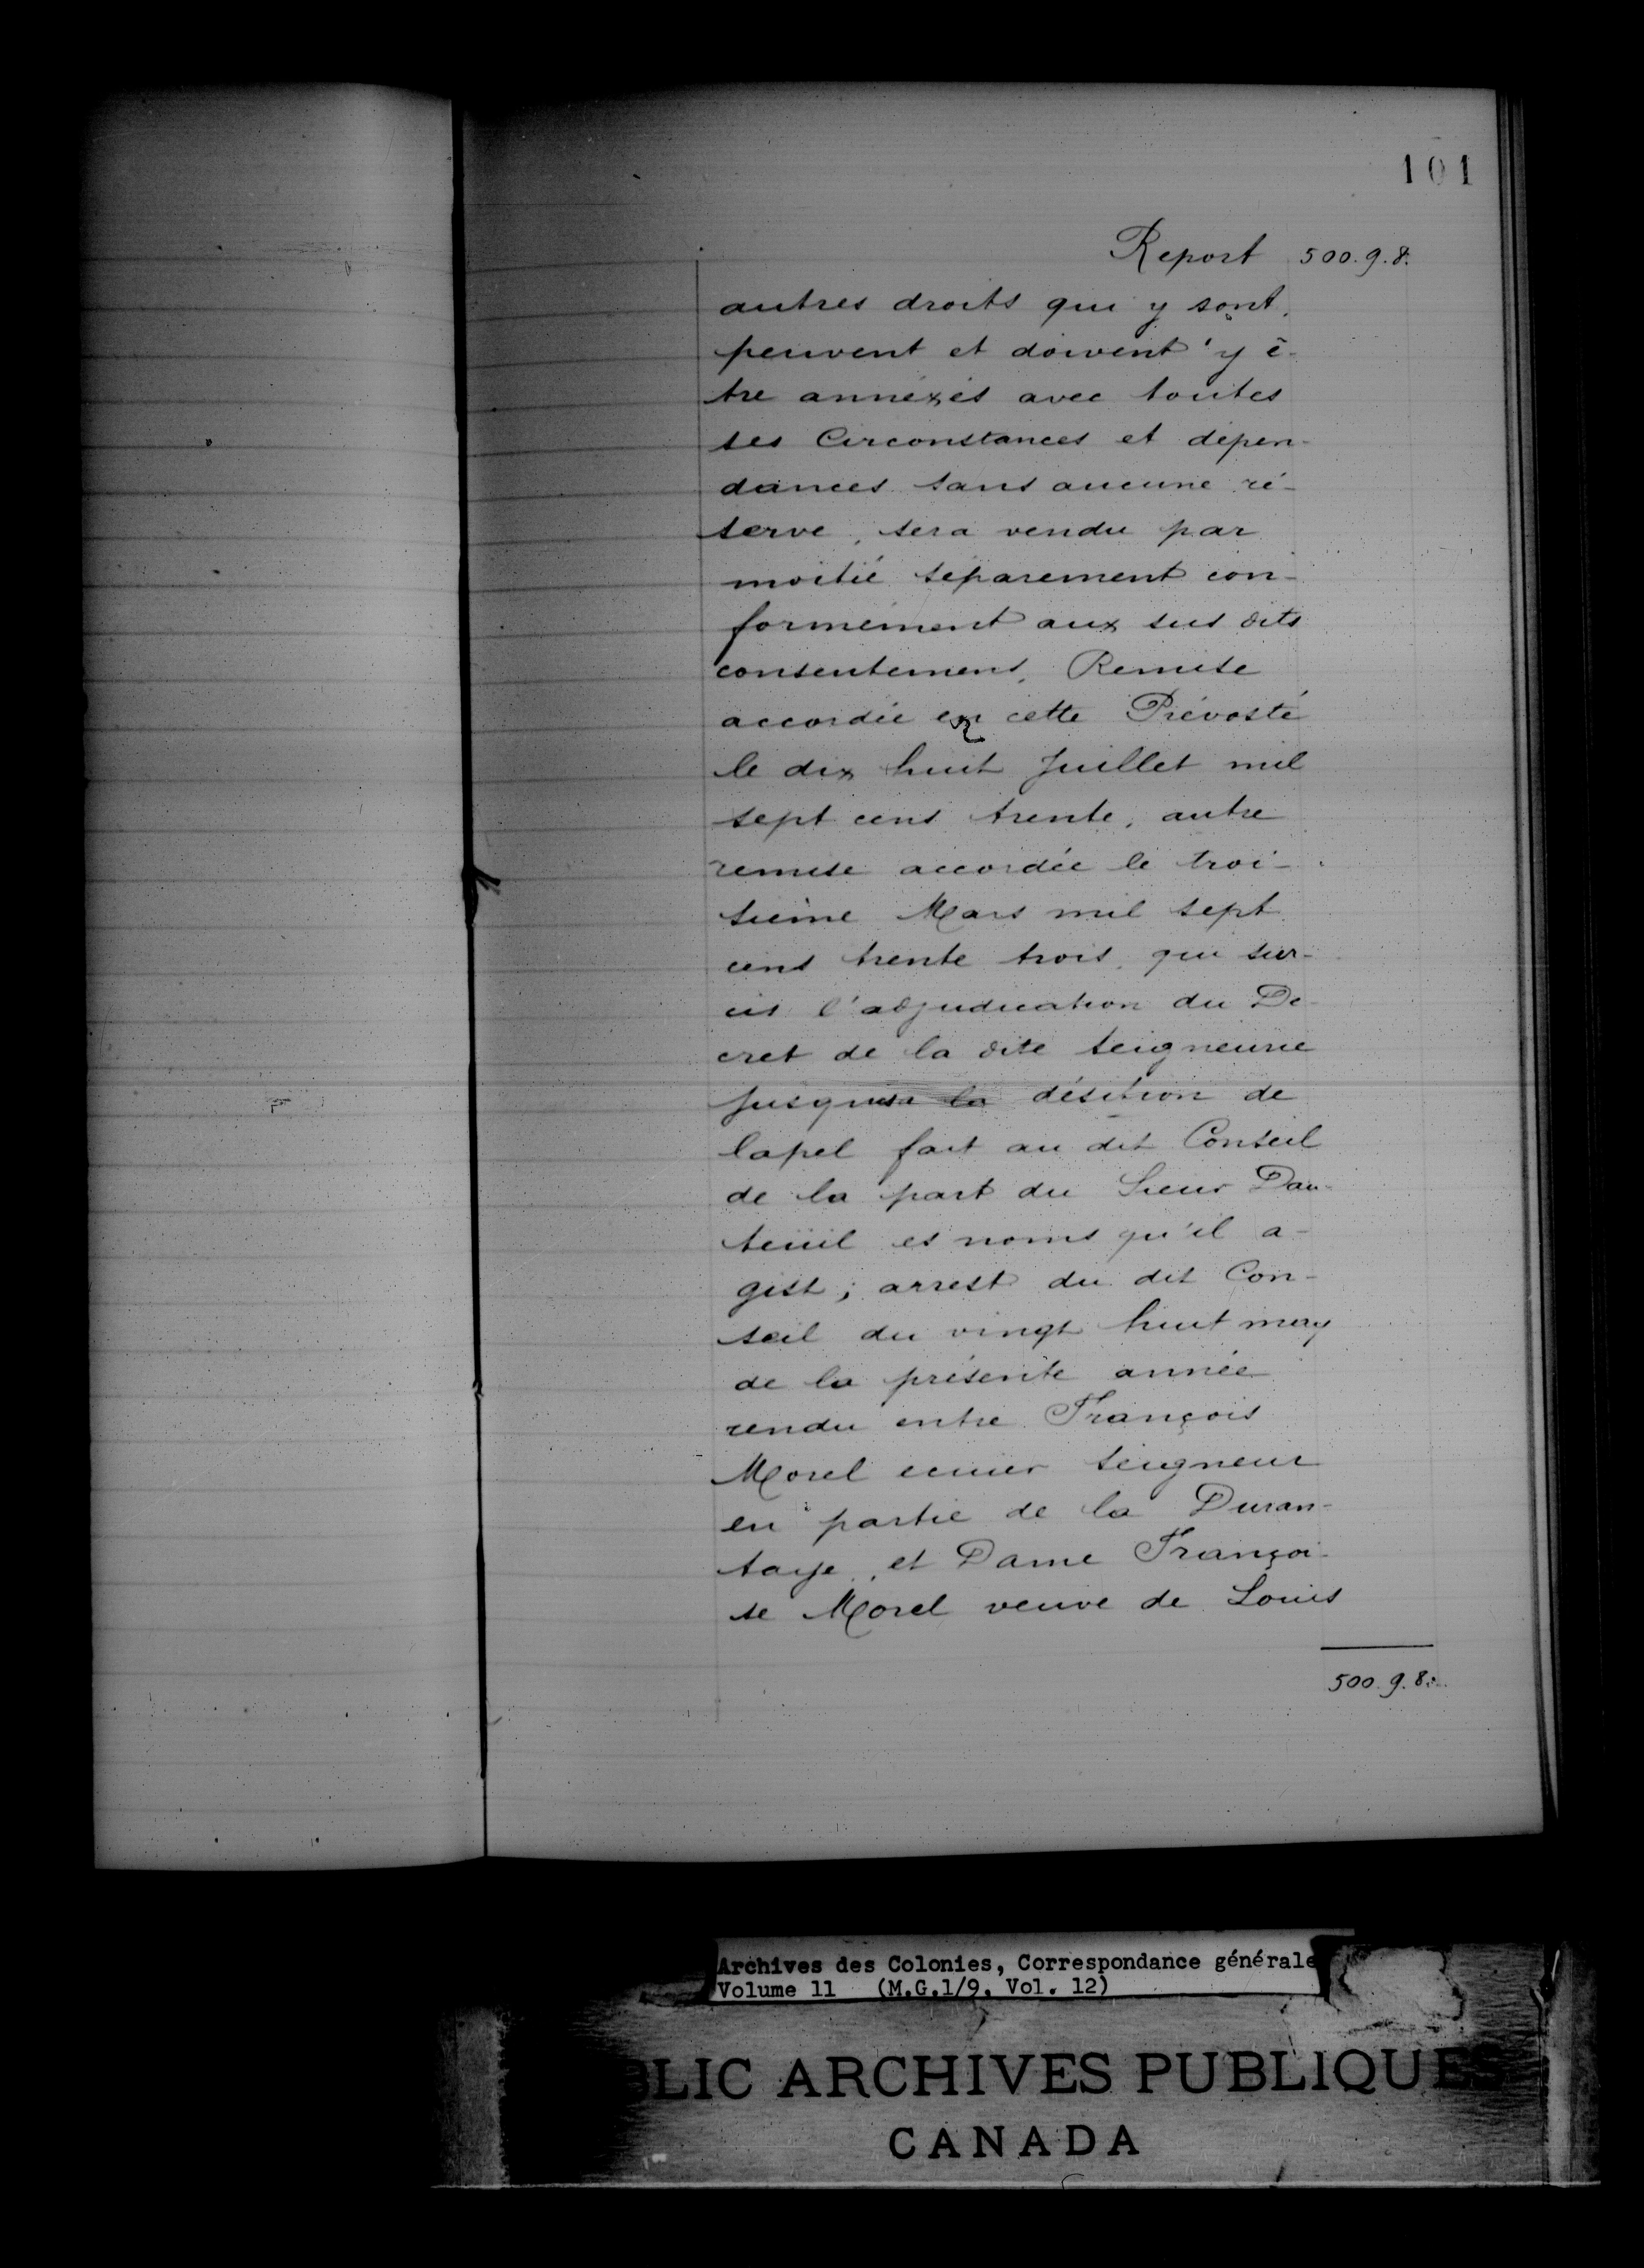 101
Report 500.9.8.
autres droits qui y sont,
peuvent et doivent y ê-
tre annéxés avec toutes
ses Circonstances et dépen-
dances sans aucune ré-
serve, sera vendu par
moitié séparement con-
formément aux sus dits
consentemens, Remise
accordée en cette Prévosté
le dix huit Juillet mil
sept cens trente, autre
remise accordée le troi-
sième Mars mil sept
cens trente trois, qui sur-
cis l'adjudication du De-
cret de la dite seigneurie
jusqu'a la désition de
lapel fait au dit Conseil
de la part du Sieur Dau-
teüil es noms qu'il a-
gist; arrest du dit Con-
seil du vingt huit may
de la présente année
rendu entre François
Morel ecuier seigneur
en partie de la Duran-
taye, et Dame Françoi-
se Morel veuve de Louis
500.9.8.
Archives des Colonies, Correspondance générale
Volume 11 (M.G.1/9, Vol. 12)
BLIC ARCHIVES PUBLIQUES
CANADA